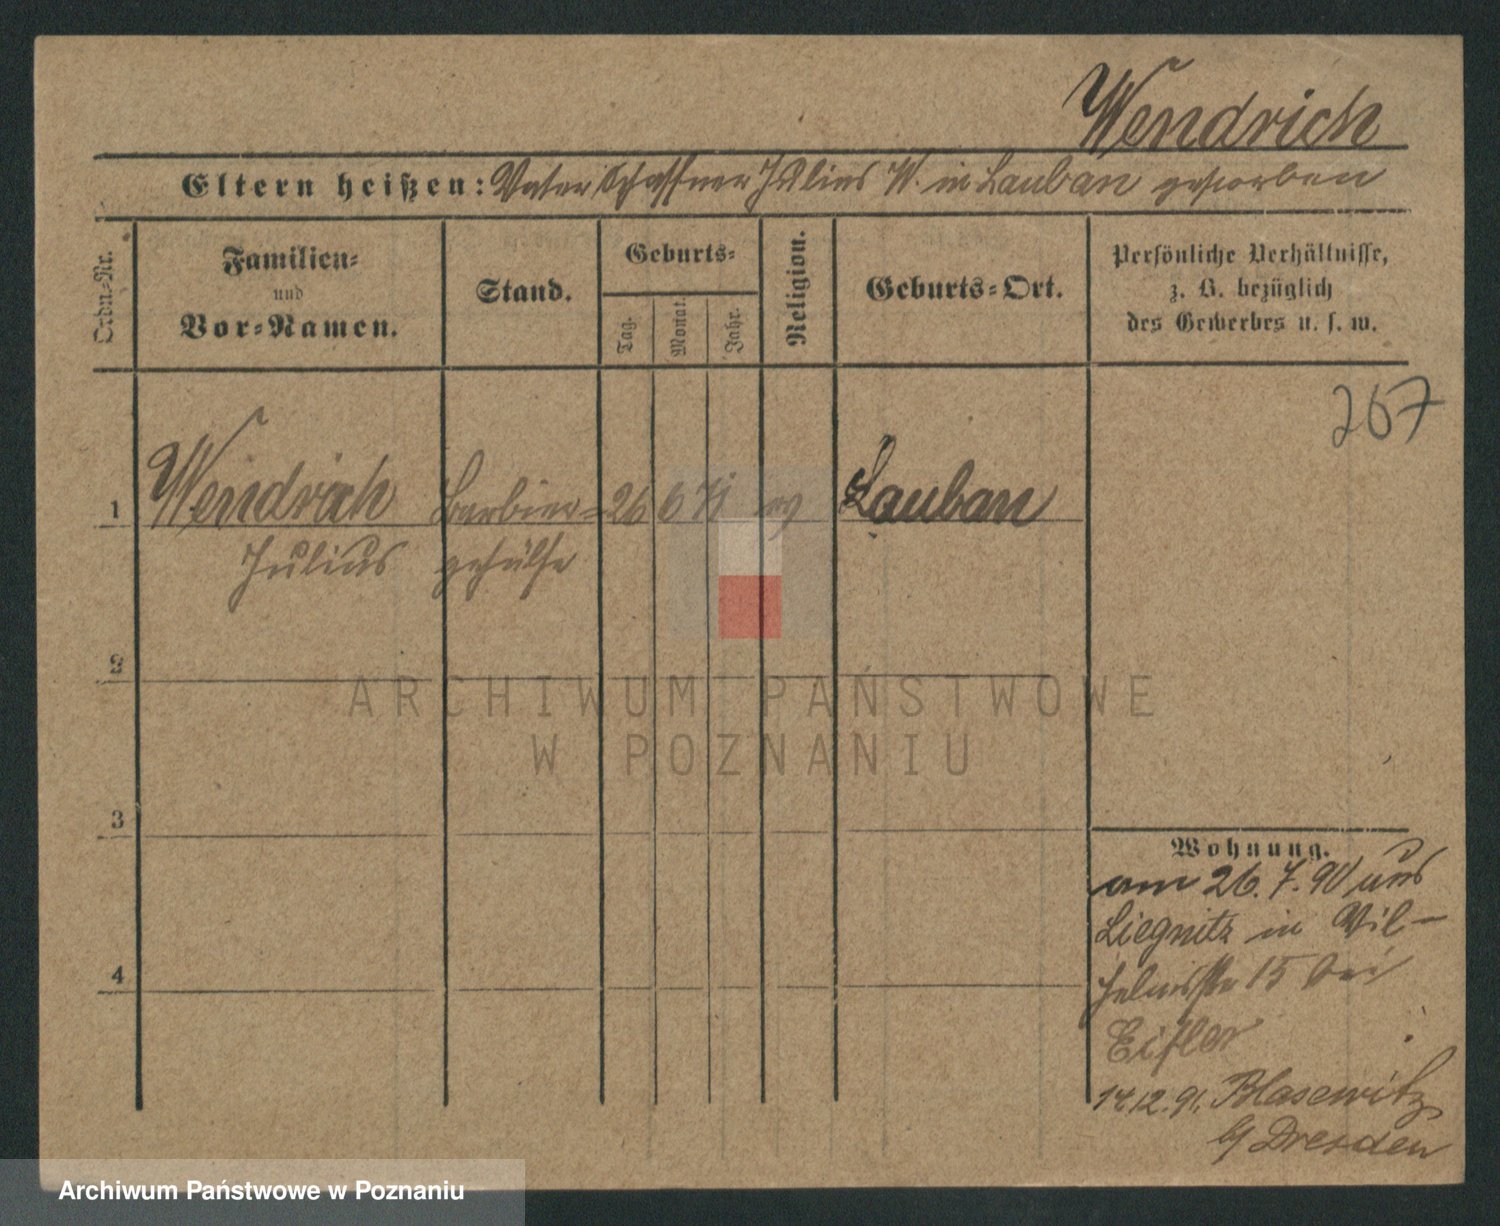 Wendrich
Eltern heißen: Vater Schaffner Julius W. in Lauban gestorben
Ordn.-Nr.
Familien-
und
Vor-Namen.
Stand.
Geburts-
Tag.
Monat.
Jahr.
Religion.
Geburts-Ort.
Persönliche Verhältnisse,
z. B. bezüglich
des Gewerbes u. s. w.
267
1 Wendrich Barbier- 26 6 71 ev Lauban
Julius gehülfe
2
ARCHIWUM PAŃSTWOWE
W POZNANIU
3
Wohnung.
am 26.7.90 aus
Liegnitz in Wil-
helmsstr 15 bei
4
Eifler
14.12.91. Blasewitz
b/ Dresden
Archiwum Państwowe w Poznaniu